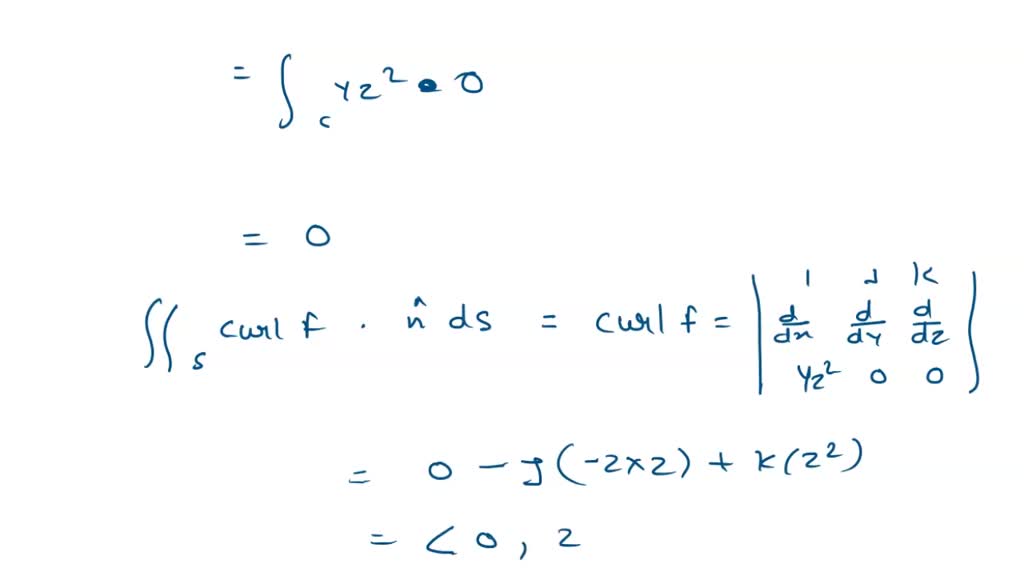 = ∫c yz² • 0
= 0
∬s curl f . n̂ ds = curl f = | i j k
d/dx d/dy d/dz
yz² 0 0 |
= 0 - j(-2xz) + k(z²)
= < 0, 2